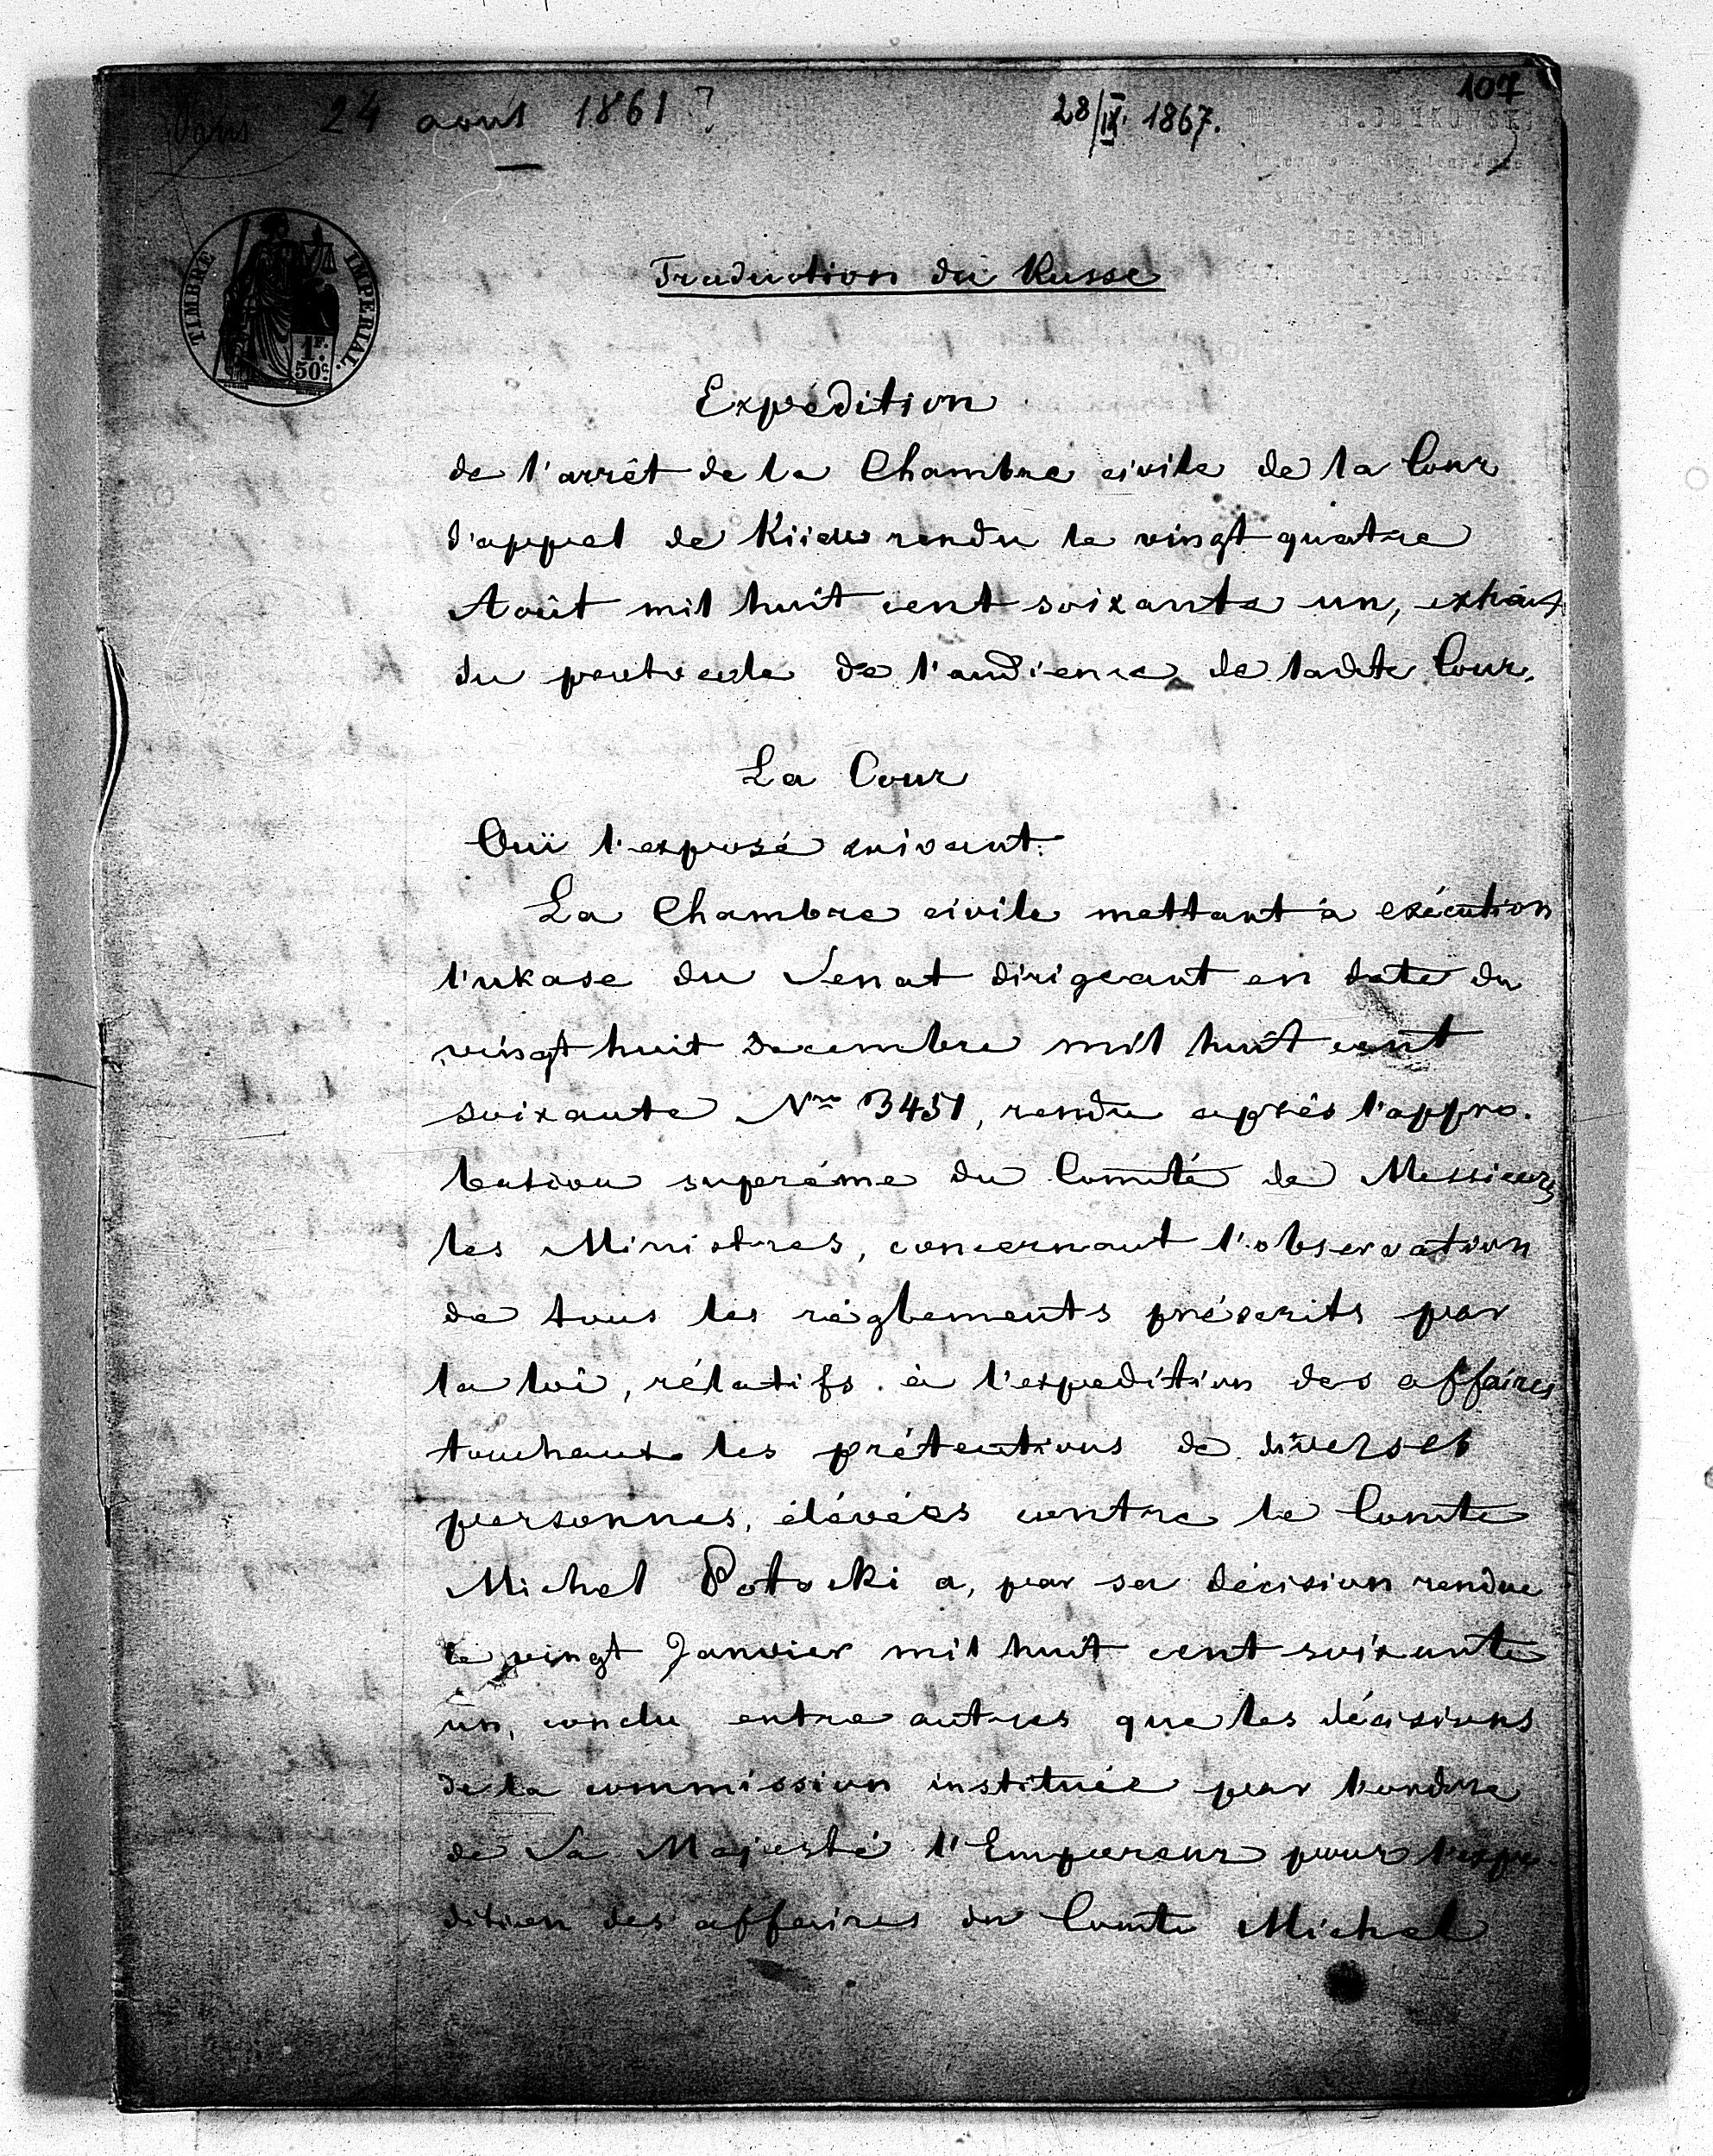 107
Paris 24 août 1861 ?
28/IX. 1867.
TIMBRE IMPERIAL.
1F.
50c.
Traduction du Russe
Expédition
de l'arrêt de la Chambre civile de la Cour
d'appel de Kiiew rendu le vingt quatre
Août mil huit cent soixante un, extrait
du protocole de l'audience de ladite Cour.
La Cour
Ouï l'exposé suivant:
La Chambre civile mettant à exécution
l'ukase du Senat dirigeant en date du
vingt huit Decembre mil huit cent
soixante Nro 3451, rendu après l'appro-
bation suprême du Comité de Messieurs
les Ministres, concernant l'observation
de tous les réglements préscrits par
la loi, rélatifs à l'expedition des affaires
touchant les prétentions de diverses
personnes, élévées contre le Comte
Michel Potocki a, par sa décision rendue
le vingt Janvier mil huit cent soixante
un, conclu entre autres que les décisions
de la commission instituée par l'ordre
de Sa Majesté l'Empereur pour l'expé-
dition des affaires du Comte Michel